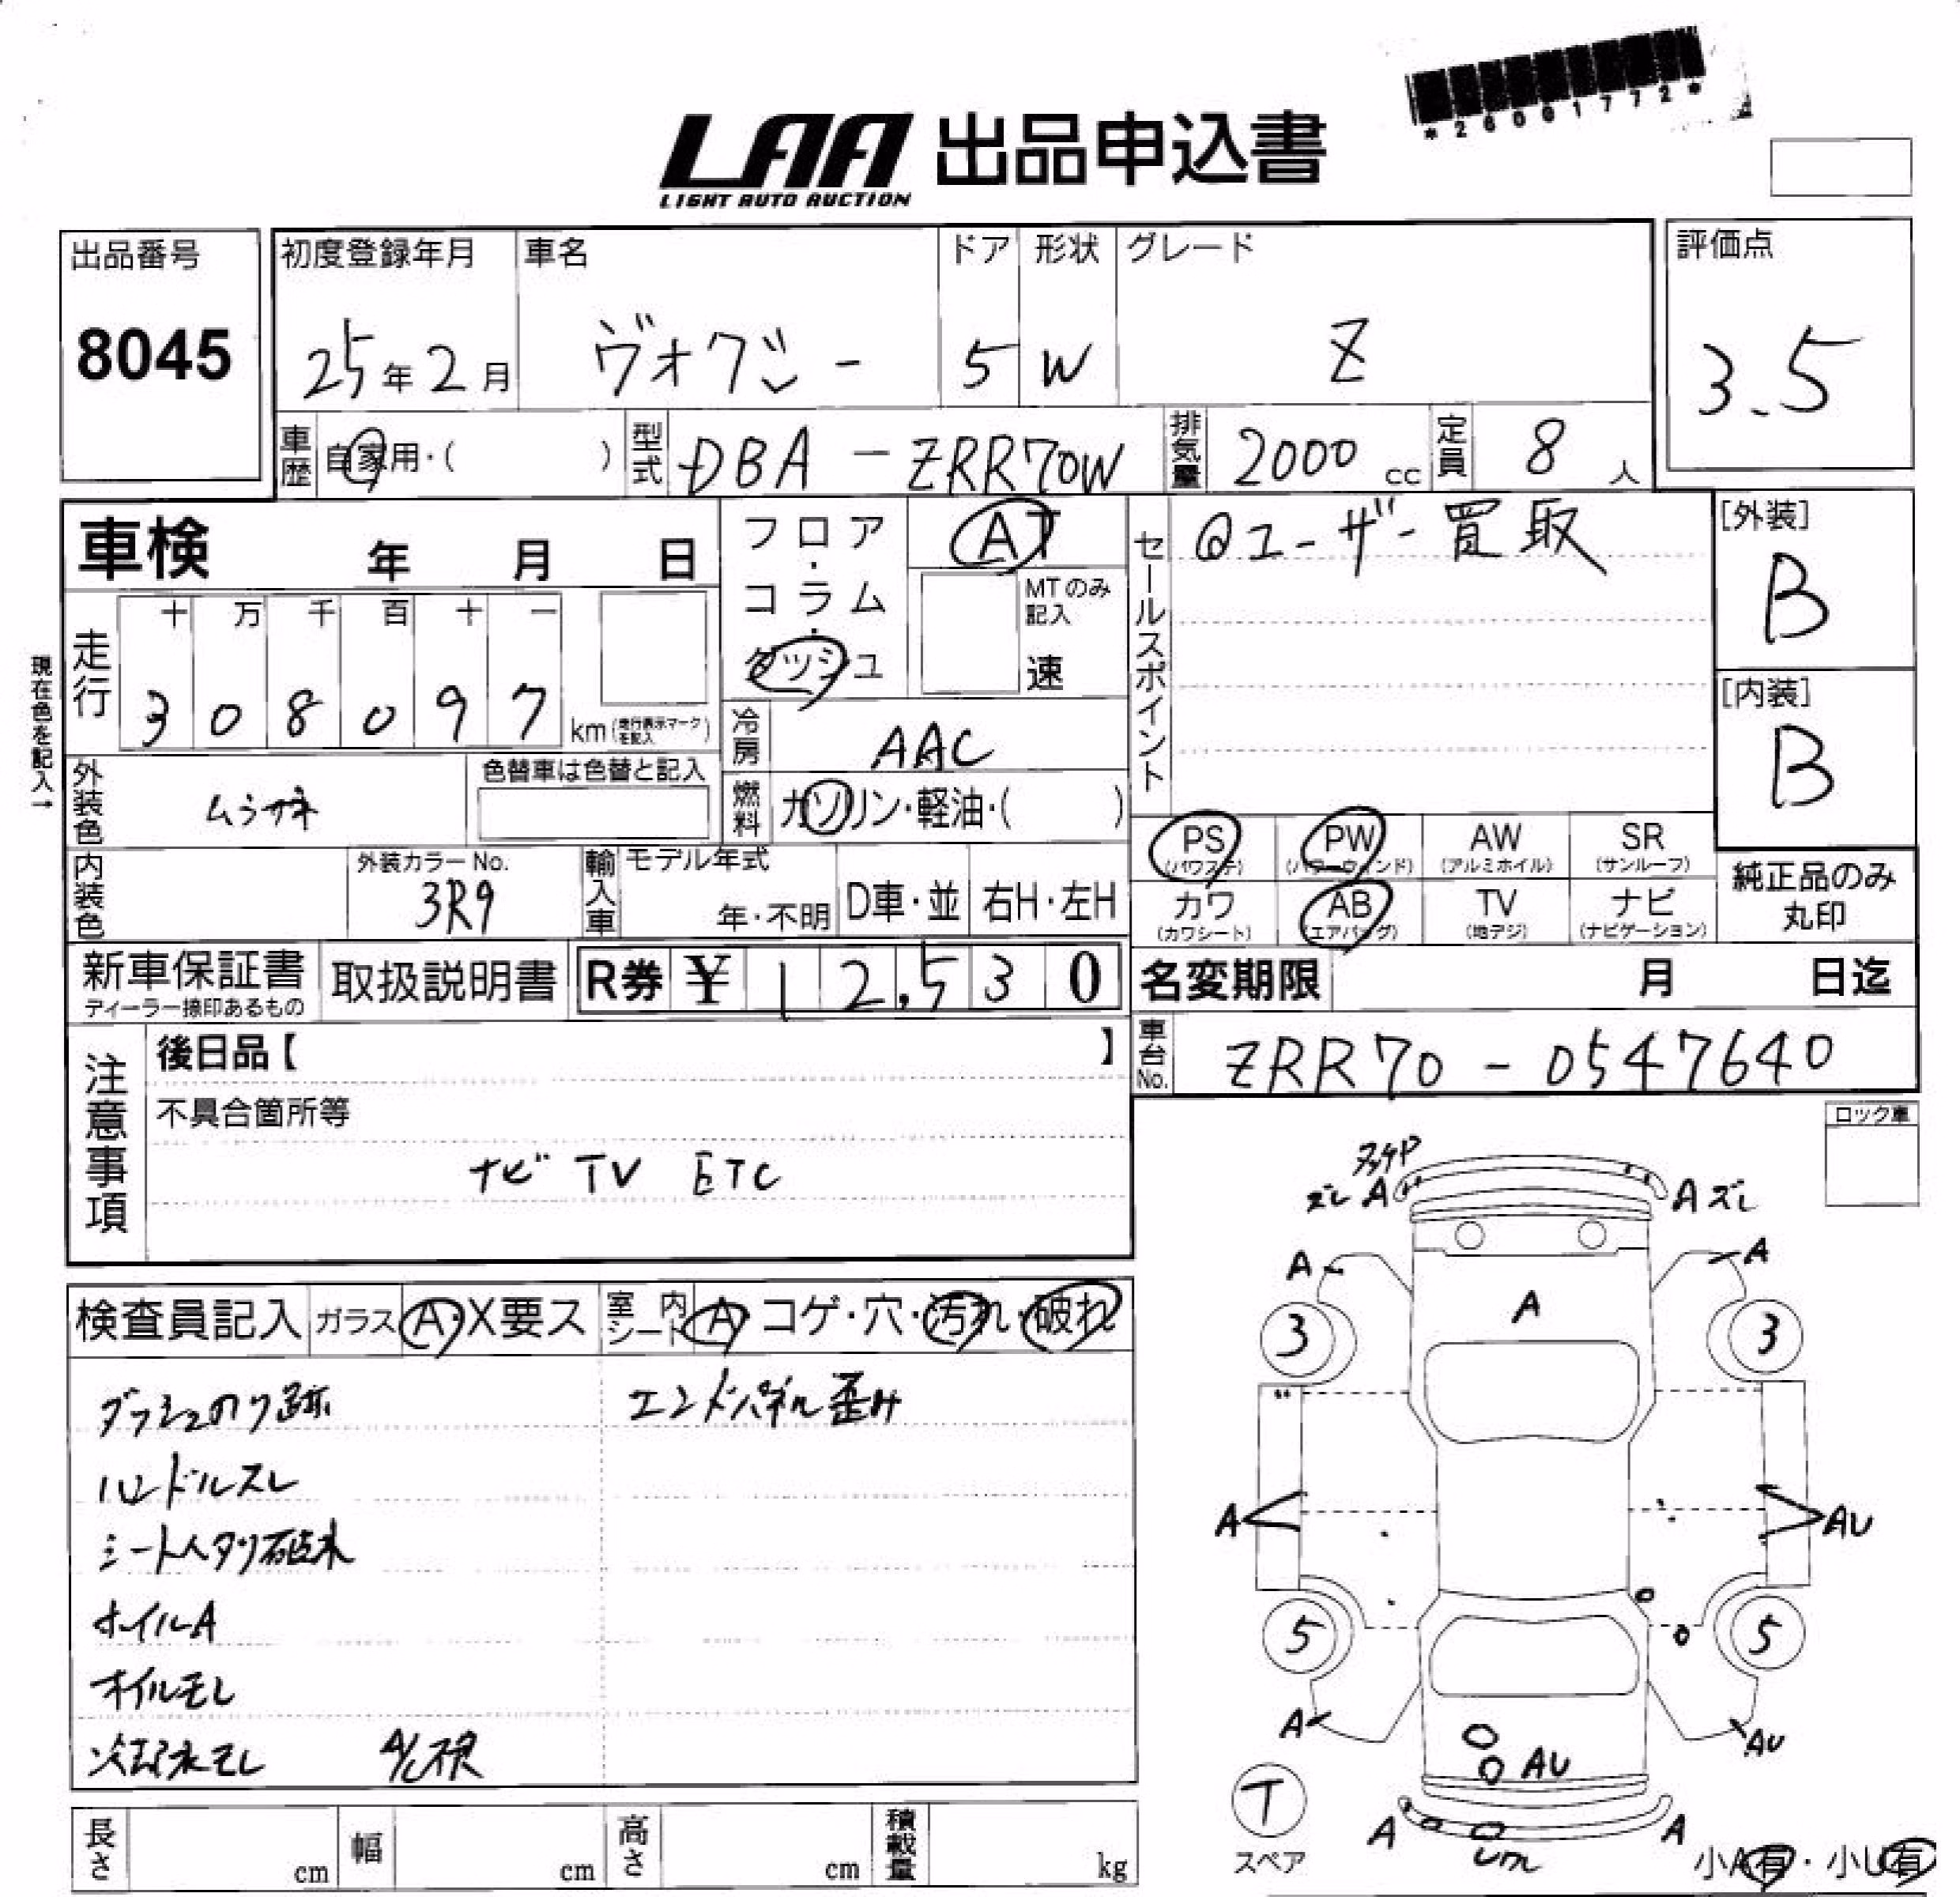 *26001772*
LAA 出品申込書
LIGHT AUTO AUCTION
出品番号 初度登録年月 車名 ドア 形状 グレード 評価点
8045 25年2月 ヴォクシー 5 W Z 3.5
車歴 自家用・( ) 型式 DBA-ZRR70W 排気量 2000 cc 定員 8 人
車検 年 月 日 フロア・コラム・ダッシュ AT セールスポイント @ユーザー買取 [外装]
MTのみ記入 B
速
現在色を記入→
走行 十 万 千 百 十 一
3 0 8 0 9 7 km(走行表示マークを記入)
[内装]
B
冷房 AAC
外装色 ムラサキ 色替車は色替と記入
燃料 ガソリン・軽油・( )
PS PW AW SR
(パワステ) (パワーウィンド) (アルミホイル) (サンルーフ)
内装色 外装カラーNo. 3R9 輸入車 モデル年式 年・不明 D車・並 右H・左H
カワ AB TV ナビ 純正品のみ丸印
(カワシート) (エアバッグ) (地デジ) (ナビゲーション)
新車保証書 取扱説明書 R券 ¥12,530 名変期限 月 日迄
ディーラー捺印あるもの
車台No. ZRR70-0547640
注意事項 後日品【 】
不具合箇所等
ナビ TV ETC
ロック車
ズレ A A ズレ
A A
A
3 3
A AU
5 5
A AU
AU
T
スペア
A A
小A有・小U有
検査員記入 ガラス A・X要ス 室内シート A・コゲ・穴・汚れ・破れ
ダッシュのり跡 エンドパネル歪み
ハンドルスレ
シートヘタリ破れ
ホイルA
オイルモレ
冷却水モレ
長さ cm 幅 cm 高さ cm 積載量 kg